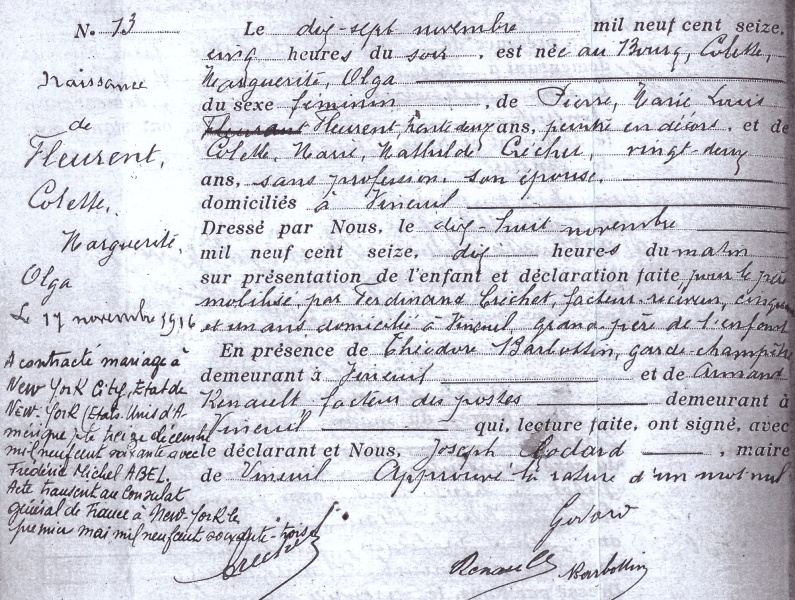 N. 13
Naissance
de
Fleurent,
Colette,
Marguerite,
Olga
Le 17 novembre 1916
A contracté mariage à
New York City, Etat de
New-York (Etats-Unis d'A-
mérique) le treize décembre
mil neuf cent soixante avec
Frédéric Michel ABEL.
Acte transcrit au Consulat
général de France à New-York le
premier mai mil neuf cent soixante-trois
Le dix-sept novembre mil neuf cent seize,
cinq heures du soir, est née au Bourg, Colette,
Marguerite, Olga
du sexe féminin, de Pierre, Marie Louis
Fleurant Fleurent, trente deux ans, peintre en décors, et de
Colette, Marie, Mathilde Créchet, vingt-deux
ans, sans profession, son épouse,
domiciliés à Vineuil
Dressé par Nous, le dix-huit novembre
mil neuf cent seize, dix heures du matin
sur présentation de l'enfant et déclaration faite pour le père
mobilisé, par Ferdinand Créchet, facteur-receveur, cinquante
et un ans domicilié à Vineuil, grand-père de l'enfant
En présence de Théodore Barbottin, garde champêtre
demeurant à Vineuil et de Armand
Renault facteur des postes demeurant à
Vineuil qui, lecture faite, ont signé, avec
le déclarant et Nous, Joseph Godard, maire
de Vineuil Approuvé la rature d'un mot nul
Godard
Créchet
Renault Barbottin